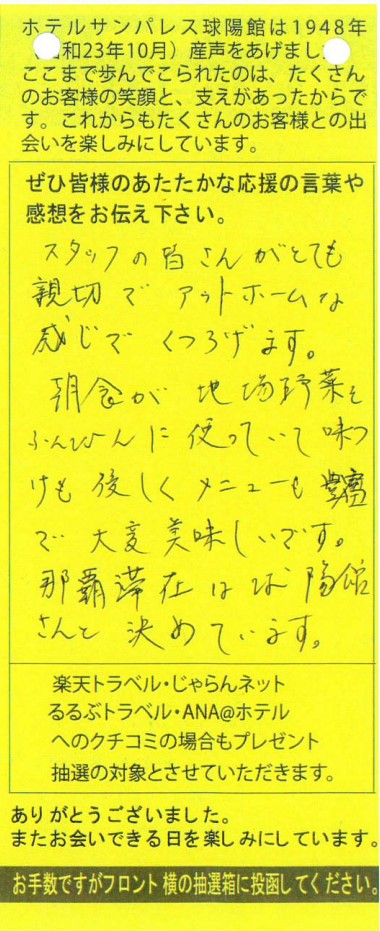 ホテルサンパレス球陽館は1948年
(昭和23年10月)産声をあげました。
ここまで歩んでこられたのは、たくさん
のお客様の笑顔と、支えがあったからで
す。これからもたくさんのお客様との出
会いを楽しみにしています。
ぜひ皆様のあたたかな応援の言葉や
感想をお伝え下さい。
スタッフの皆さんがとても
親切で アットホームな
感じで くつろげます。
朝食が 地場野菜を
ふんだんに使っていて味つ
けも優しくメニューも豊富
で大変美味しいです。
那覇滞在は球陽館
さんと決めています。
楽天トラベル・じゃらんネット
るるぶトラベル・ANA@ホテル
へのクチコミの場合もプレゼント
抽選の対象とさせていただきます。
ありがとうございました。
またお会いできる日を楽しみにしています。
お手数ですがフロント横の抽選箱に投函してください。